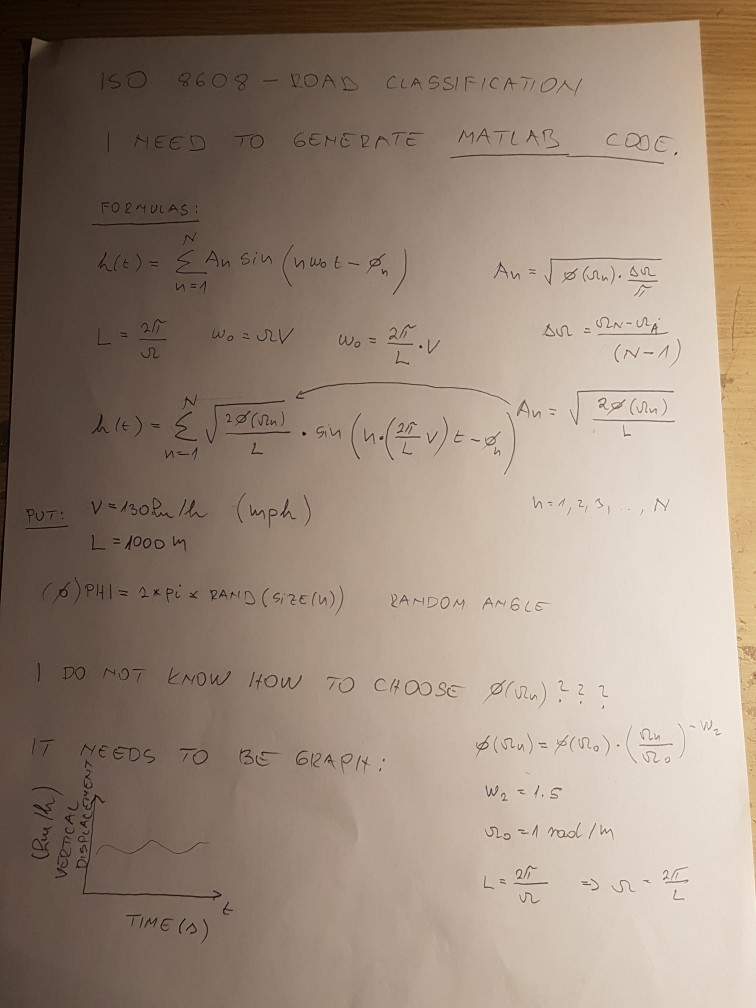 ISO 8608 - ROAD CLASSIFICATION
I NEED TO GENERATE MATLAB CODE.
FORMULAS:
h(t) = Σ_{n=1}^{N} An sin (nω₀t - ϕₙ)
An = √(ϕ(Ωn) · ΔΩ/π)
L = 2π/Ω ω₀ = ΩV ω₀ = 2π/L · V
ΔΩ = (Ω_N - Ω_A)/(N-1)
h(t) = Σ_{n=1}^{N} √(2ϕ(Ωn)/L) · sin (n·(2π/L V) t - ϕₙ)
An = √(2ϕ(Ωn)/L)
PUT: V = 130 km/h (mph)
L = 1000 m
n = 1, 2, 3, ..., N
(ϕ) PHI = 2 * pi * RAND(SIZE(n)) RANDOM ANGLE
I DO NOT KNOW HOW TO CHOOSE ϕ(Ωn) ? ? ?
IT NEEDS TO BE GRAPH:
ϕ(Ωn) = ϕ(Ω₀) · (Ωn/Ω₀)^{-W₂}
W₂ = 1.5
Ω₀ = 1 rad/m
L = 2π/Ω ⇒ Ω = 2π/L
(km/h)
VERTICAL
DISPLACEMENT
t
TIME (s)